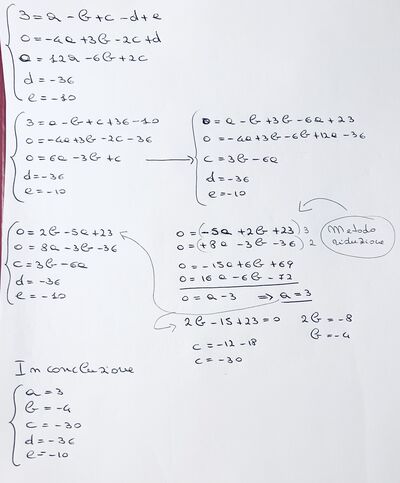 3=a-b+c-d+e
0=-4a+3b-2c+d
0=12a-6b+2c
d=-36
e=-10
3=a-b+c+36-10
0=-4a+3b-2c-36
0=6a-3b+c
d=-36
e=-10
0=a-b+3b-6a+23
0=-4a+3b-6b+12a-36
c=3b-6a
d=-36
e=-10
0=2b-5a+23
0=8a-3b-36
c=3b-6a
d=-36
e=-10
0=(-5a+2b+23)3
0=(+8a-3b-36)2
Metodo
riduzione
0=-15a+6b+69
0=16a-6b-72
0=a-3 => a=3
2b-15+23=0 2b=-8
b=-4
c=-12-18
c=-30
In conclusione
a=3
b=-4
c=-30
d=-36
e=-10